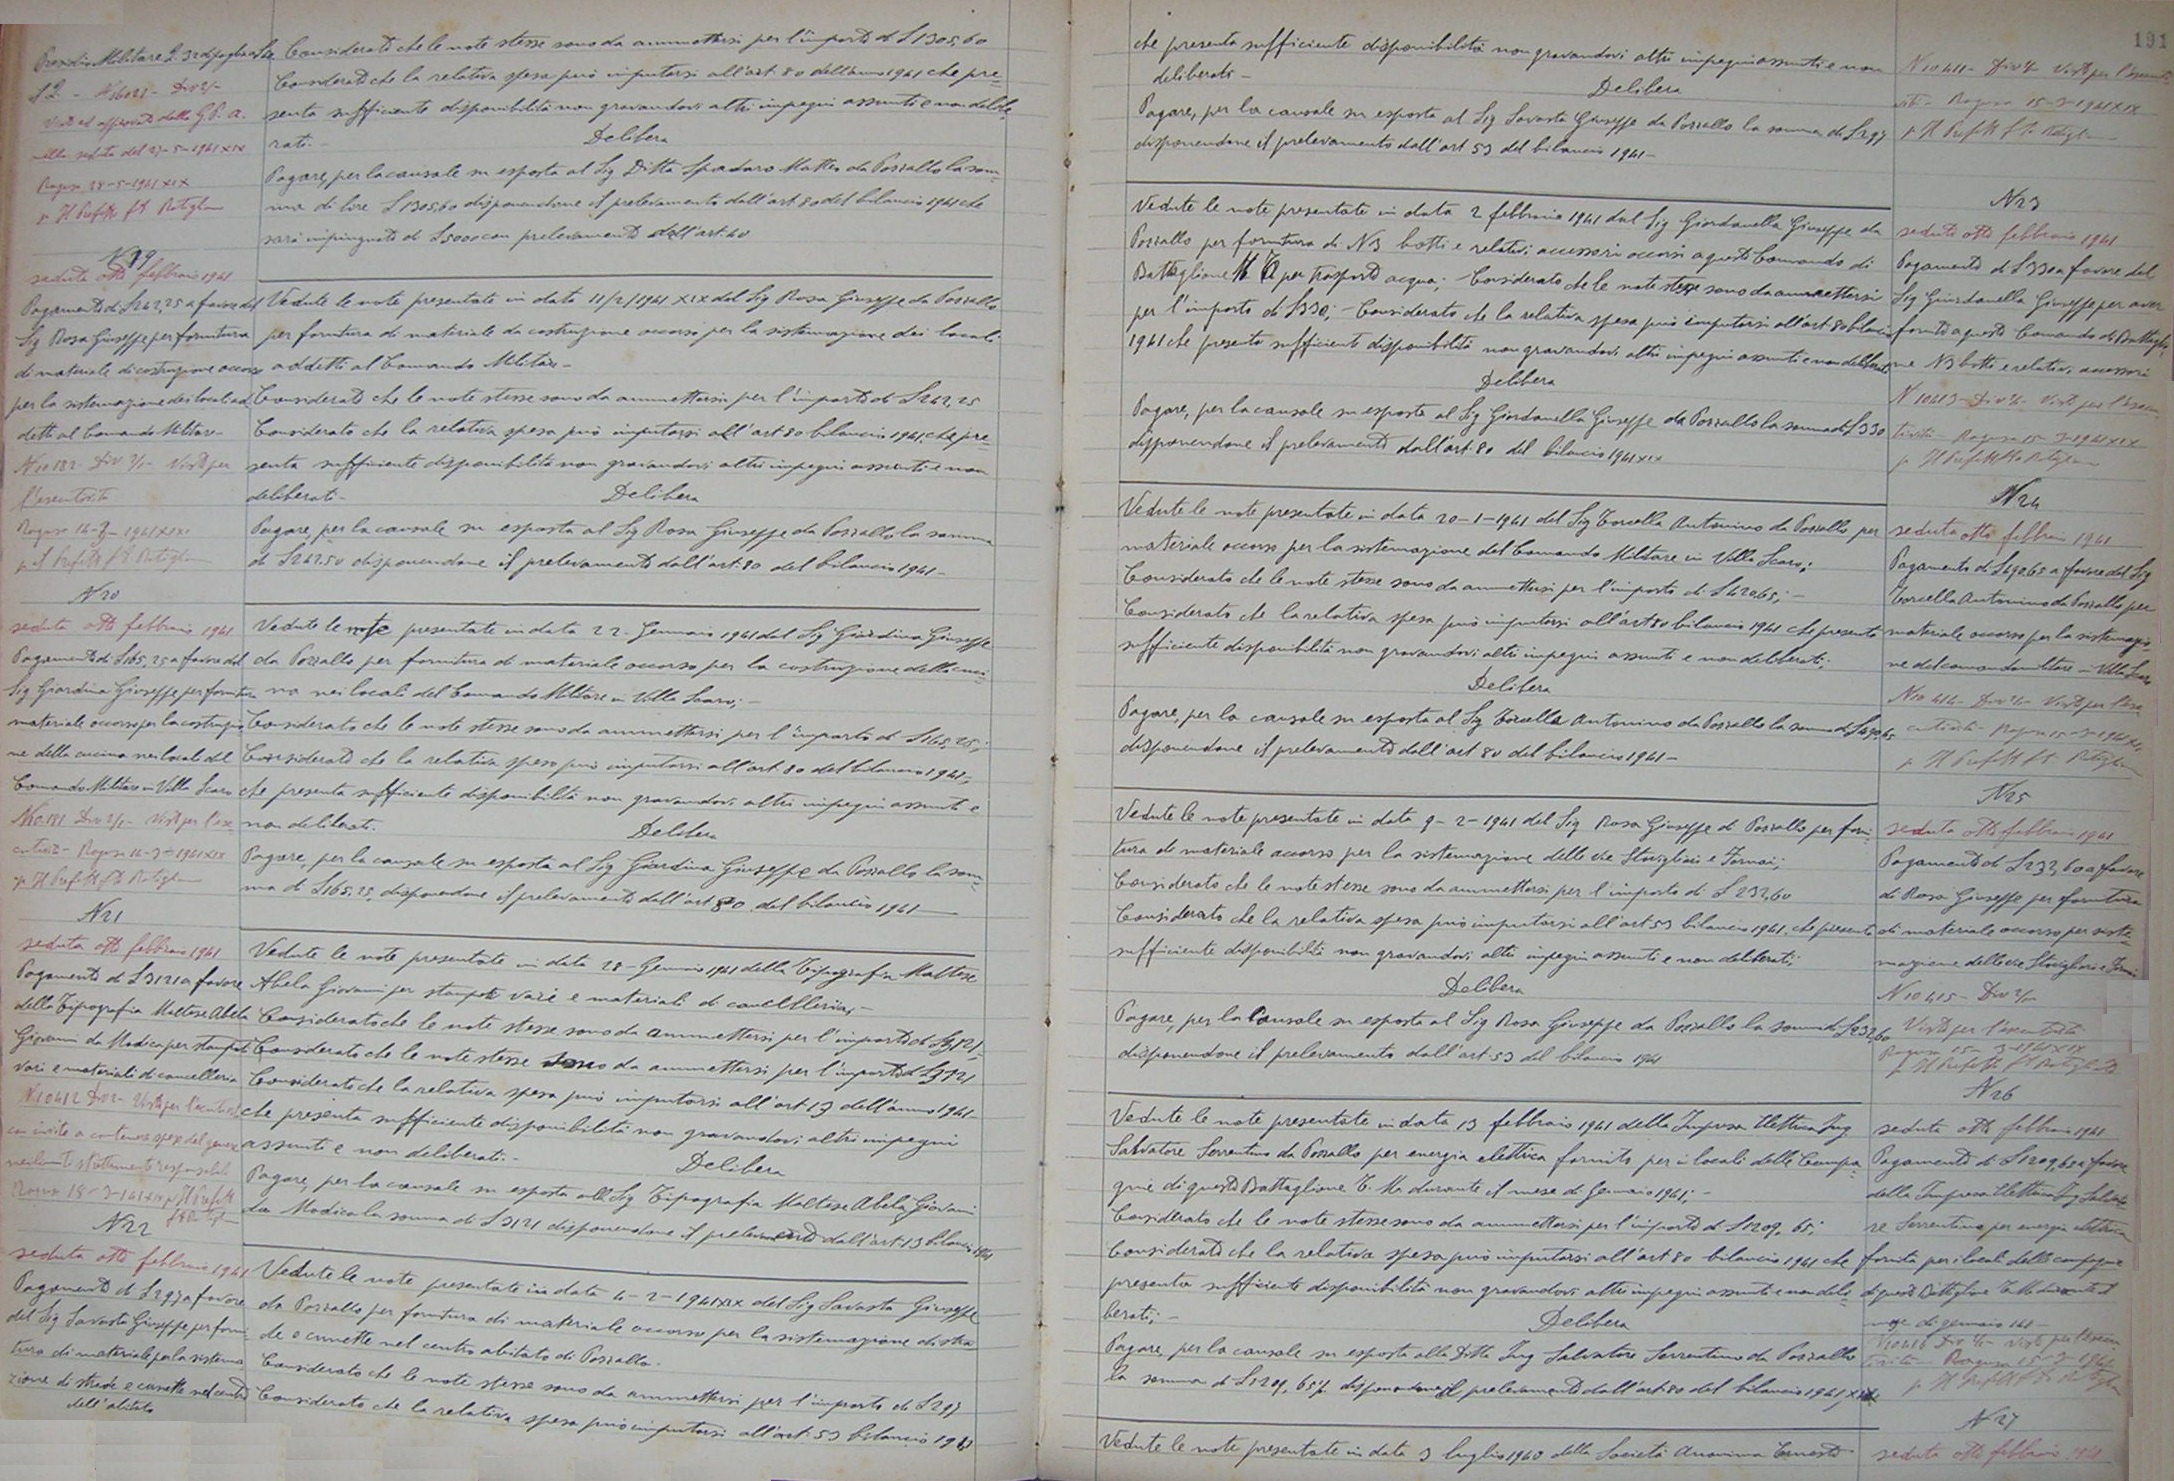 Considerato che le note stesse sono da ammettersi per l'importo di £ 1305,60
Considerato che la relativa spesa può imputarsi all'art 80 dell'anno 1941 che pre=
senta sufficiente disponibilità non gravandovi altri impegni assunti e non delibe=
rati.-
Delibera
Pagare, per la causale su esposta al Sig Ditta Spadaro Matteo da Pozzallo la som=
ma di lire £ 1305,60 disponendone il prelevamento dall'art. 80 del bilancio 1941 che
sarà impinguato di £ 5000 con prelevamento dall'art. 40
Visto ed approvato dalla G.P.A.
nella seduta del 27-5-1941 XIX
Ragusa 28-5-1941 XIX
p Il Prefetto
N 19
seduta otto febbraio 1941
Pagamento di £ 242,25 a favore del
Sig Rosa Giuseppe per fornitura
di materiale di costruzione occorso
per la sistemazione dei locali ad
detti al Comando Militare-
N 10182 Div 2/- Visto per
l'esecutività
Vedute le note presentate in data 11/2/1941 XIX del Sig Rosa Giuseppe da Pozzallo
per fornitura di materiale da costruzione occorso per la sistemazione dei locali
addetti al Comando Militare-
Considerato che le note stesse sono da ammettersi per l'importo di £ 242,25
Considerato che la relativa spesa può imputarsi all'art 80 bilancio 1941, che pre=
senta sufficiente disponibilità non gravandovi altri impegni assunti e non
deliberati-
Delibera
Pagare, per la causale su esposta al Sig Rosa Giuseppe da Pozzallo la somma
di £ 242.50 disponendone il prelevamento dall'art. 80 del bilancio 1941-
N 20
seduta otto febbraio 1941
Pagamento di £ 165,25 a favore del
Sig Giardina Giuseppe per fornitura
materiale occorso per la costruzio
ne della cucina nei locali del
Comando Militare in Villa Scaro
N 10.181 Div 2/- Visto per l'ese
cutività- Ragusa 14-3-1941 XIX
p Il Prefetto
Vedute le note presentate in data 22- Gennaio 1941 dal Sig Giardina Giuseppe
da Pozzallo per fornitura di materiale occorso per la costruzione della cuci=
na nei locali del Comando Militare in Villa Scaro;-
Considerato che le note stesse sono da ammettersi per l'importo di £ 165,25;
Considerato che la relativa spesa può imputarsi all'art. 80 del bilancio 1941-,
che presenta sufficiente disponibilità non gravandovi altri impegni assunti e
non deliberati.
Delibera
Pagare, per la causale su esposta al Sig Giardina Giuseppe da Pozzallo la som=
ma di £ 165,25, disponendone il prelevamento dall'art 80 del bilancio 1941-
N 21
seduta otto febbraio 1941
Pagamento di £ 3121 a favore
della Tipografia Maltese Abela
Giovanni da Modica per stampati
vari e materiali di cancelleria
N. 10412 Div 2- Visto per l'esecutività
Vedute le note presentate in data 28- Gennaio 1941 della Tipografia Maltese
Abela Giovanni per stampati vari e materiali di cancelleria;-
Considerato che le note stesse sono da ammettersi per l'importo di £ 3.121-
Considerato che le note stesse sono da ammettersi per l'importo di £ 3121
Considerato che la relativa spesa può imputarsi all'art. 13 dell'anno 1941-
che presenta sufficiente disponibilità non gravandovi altri impegni
assunti e non deliberati.-
Delibera
Pagare, per la causale su esposta alla Sig Tipografia Maltese Abela Giovanni
da Modica la somma di £ 3121 disponendone il prelevamento dall'art. 13 bilancio 1941
N 22
seduta otto febbraio 1941
Pagamento di £ 297 a favore
del Sig Savasta Giuseppe per forni
tura di materiale per la sistema
zione di strade e cunette nel centro
dell'abitato
Vedute le note presentate in data 4-2-1941 XIX del Sig Savasta Giuseppe
da Pozzallo per fornitura di materiale occorso per la sistemazione di stra
de e cunette nel centro abitato di Pozzallo-
Considerato che le note stesse sono da ammettersi per l'importo di £ 297
Considerato che la relativa spesa può imputarsi all'art. 53 bilancio 1941
191
che presenta sufficiente disponibilità non gravandovi altri impegni assunti e non
deliberati-
Delibera
Pagare, per la causale su esposta al Sig Savasta Giuseppe da Pozzallo la somma di £ 297
disponendone il prelevamento dall'art 53 del bilancio 1941-
N 10411- Div 2/- Visto per l'esecuti
vità- Ragusa 15-3-1941 XIX
p Il Prefetto
Vedute le note presentate in data 2 febbraio 1941 dal Sig Giordanella Giuseppe da
Pozzallo per fornitura di N 3 botti e relativi accessori occorsi a questo Comando di
Battaglione per trasporto acqua; Considerato che le note stesse sono da ammettersi
per l'importo di £ 330; - Considerato che la relativa spesa può imputarsi all'art 80 bilancio
1941 che presenta sufficiente disponibilità non gravandovi altri impegni assunti e non deliberati
Delibera
Pagare, per la causale su esposta al Sig Giordanella Giuseppe da Pozzallo la somma di £ 330
disponendone il prelevamento dall'art. 80 del bilancio 1941 XIX
N 23
seduta otto febbraio 1941
Pagamento di £ 330 a favore del
Sig Giordanella Giuseppe per aver
fornito a questo Comando di Battaglio
ne N 3 botti e relativi accessori
N 10413- Div 2/- Visto per l'esecu
tività- Ragusa 15-3-1941 XIX
p Il Prefetto
Vedute le note presentate in data 20-1-1941 del Sig Torcella Antonino da Pozzallo per
materiale occorso per la sistemazione del Comando Militare in Villa Scaro;
Considerato che le note stesse sono da ammettersi per l'importo di £ 420.65; -
Considerato che la relativa spesa può imputarsi all'art 80 bilancio 1941 che presenta
sufficiente disponibilità non gravandovi altri impegni assunti e non deliberati;
Delibera
Pagare, per la causale su esposta al Sig Torcella Antonino da Pozzallo la somma di £ 490.65
disponendone il prelevamento dall'art 80 del bilancio 1941-
N 24
seduta otto febbraio 1941
Pagamento di £ 490.65 a favore del Sig
Torcella Antonino da Pozzallo per
materiale occorso per la sistemazio
ne del comando militare - Villa Scaro
N 10 414- Div 2/- Visto per l'ese
cutività- Ragusa 15-3-1941 XIX
p Il Prefetto
Vedute le note presentate in data 9-2-1941 del Sig Rosa Giuseppe di Pozzallo per forni
tura di materiale occorso per la sistemazione delle vie Stovigliai e Fornai;
Considerato che le note stesse sono da ammettersi per l'importo di £ 232,60
Considerato che la relativa spesa può imputarsi all'art 53 bilancio 1941, che presenta
sufficiente disponibilità non gravandovi altri impegni assunti e non deliberati;
Delibera
Pagare, per la causale su esposta al Sig Rosa Giuseppe da Pozzallo la somma di £ 232,60
disponendone il prelevamento dall'art. 53 del bilancio 1941
N 25
seduta otto febbraio 1941
Pagamento di £ 232,60 a favore
di Rosa Giuseppe per fornitura
di materiale occorso per siste=
mazione delle vie Stovigliai e Fornai
N 10415- Div 2/-
Visto per l'esecutività
Ragusa 15-3-1941 XIX
Vedute le note presentate in data 13 febbraio 1941 della Impresa Elettrica Ing
Salvatore Sorrentino da Pozzallo per energia elettrica fornita per i locali delle Compa
gnie di questo Battaglione T. M. durante il mese di Gennaio 1941; -
Considerato che le note stesse sono da ammettersi per l'importo di £ 1209, 65;
Considerato che la relativa spesa può imputarsi all'art 80 bilancio 1941 che
presenta sufficiente disponibilità non gravandovi altri impegni assunti e non deli
berati; -
Delibera
Pagare, per la causale su esposta alla Ditta Ing Salvatore Sorrentino da Pozzallo
la somma di £ 1209, 65 disponendone il prelevamento dall'art. 80 del bilancio 1941 XIX
N 26
seduta otto febbraio 1941
Pagamento di £ 1209,65 a favore
della Impresa Elettrica Ing Salvato
re Sorrentino per energia elettrica
fornita per i locali delle compagnie
di questo Battaglione T.M. durante il
mese di gennaio 141-
N 10416 Div 2/- Visto per l'esecu
tività- Ragusa 15-3-1941
Vedute le note presentate in data 3 luglio 1940 della Società Anonima Ernesto
N 27
seduta otto febbraio 1941